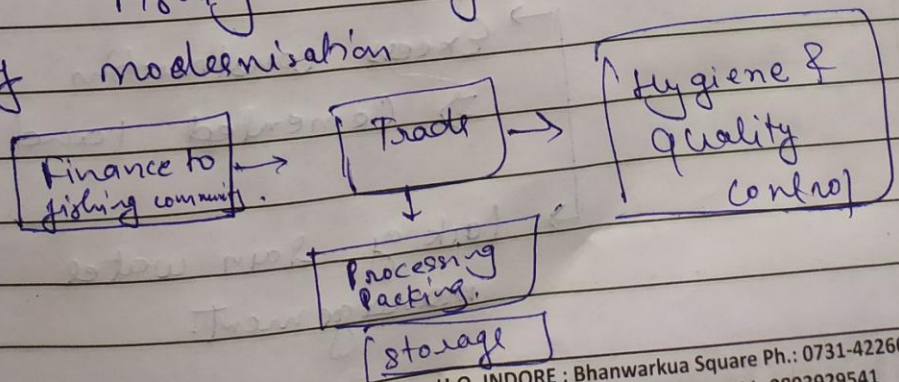 modernisation
Finance to
fishing
Trade
Hygiene &
quality
control
Processing
Packing.
Storage
INDORE : Bhanwarkua Square Ph.: 0731-4226